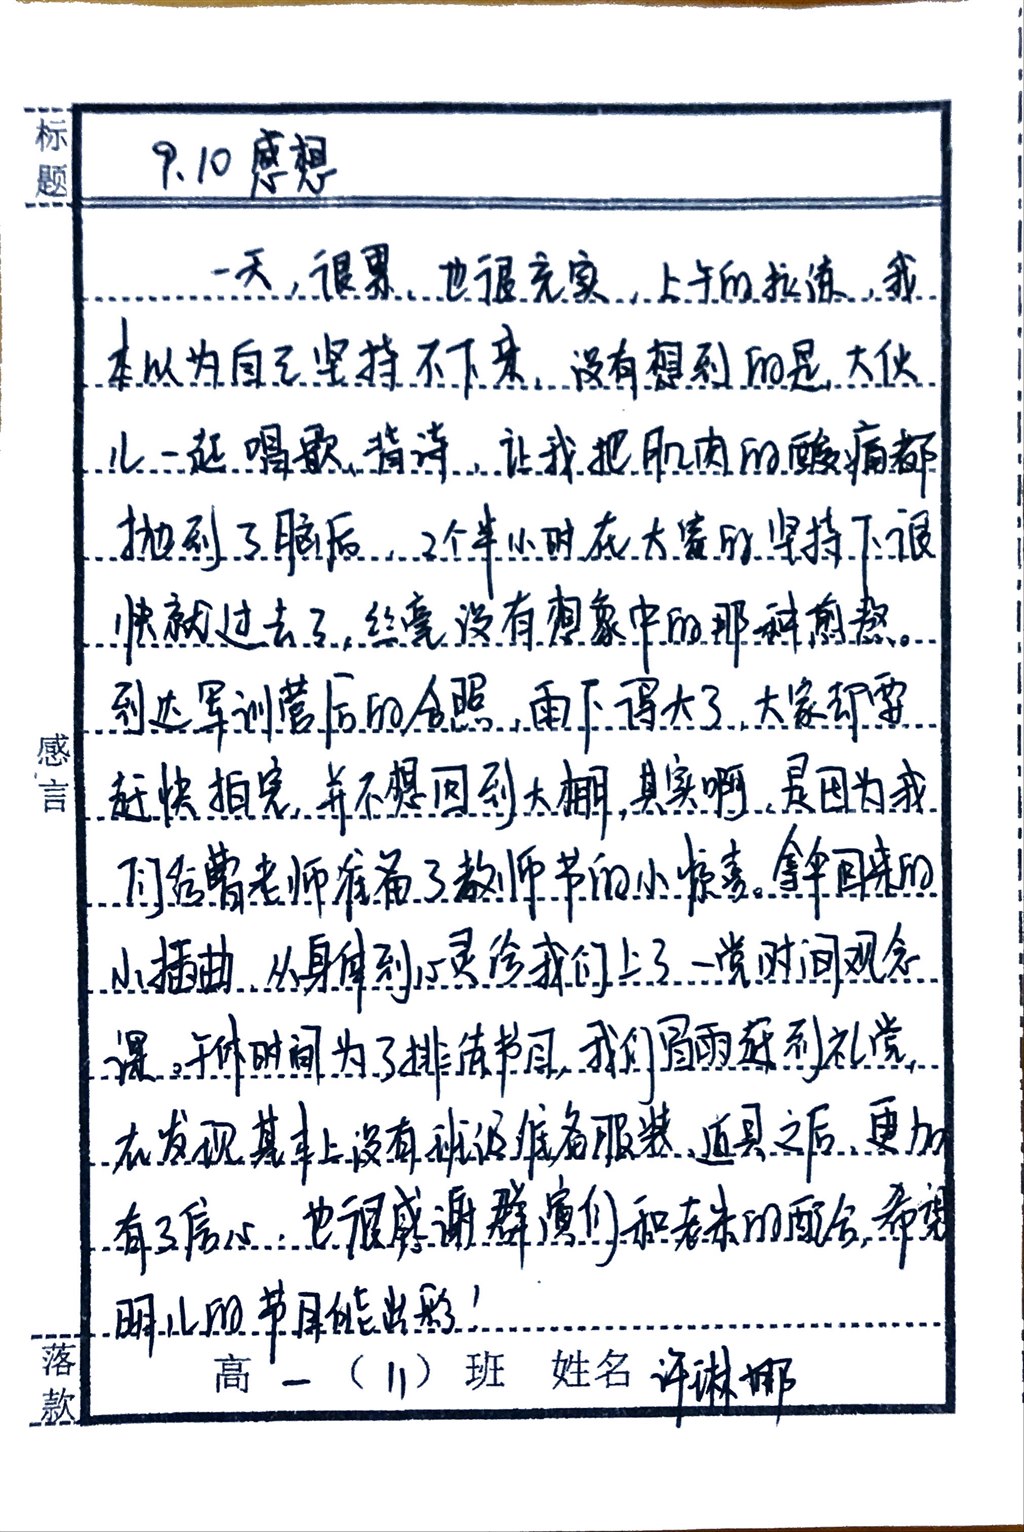 标题
9.10感想
一天，很累，也很充实，上午的拉练，我
本以为自己坚持不下来，没有想到的是，大伙
儿一起唱歌、背诗，让我把肌肉的酸痛都
抛到了脑后，2个半小时在大家的坚持下很
快就过去了，丝毫没有想象中的那种煎熬。
到达军训营后的合照，雨下得大了，大家却要
赶快拍完，并不想回到大棚，其实啊，是因为我
们给曹老师准备了教师节的小惊喜。拿伞回来的
小插曲，从身体到心灵给我们上了一堂时间观念
课。午休时间为了排练节目，我们冒雨赶到礼堂，
在发现基本上没有班级准备服装、道具之后，更加
有了信心，也很感谢群演们和老朱的配合，希望
明儿的节目能出彩！
感言
落款
高一（11）班 姓名 许琳娜